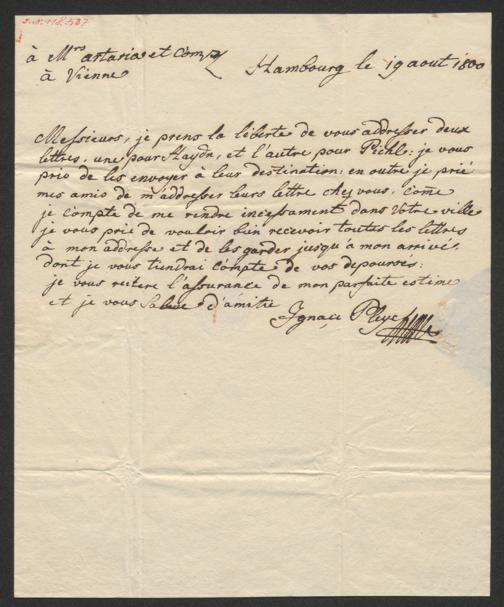 à Mrs artaria et Comp
à Vienne
Hambourg le 19 aout 1800
Messieurs, je prens la liberté de vous addresser deux
lettres, une pour Haydn, et l'autre pour Pichl: je vous
prie de les envoyer à leur destination: en outre je prié
mes amis de m'addresser leurs lettre chez vous, come
je compte de me rendre incessament dans votre ville
je vous prié de vouloir bien recevoir toutes les lettres
à mon addresse et de les garder jusqu'à mon arrivé,
dont je vous tiendrai compte de vos depourvés:
je vous reitere l'assurance de mon parfaite estime
et je vous Salue d'amitié
Ignace Pleyel